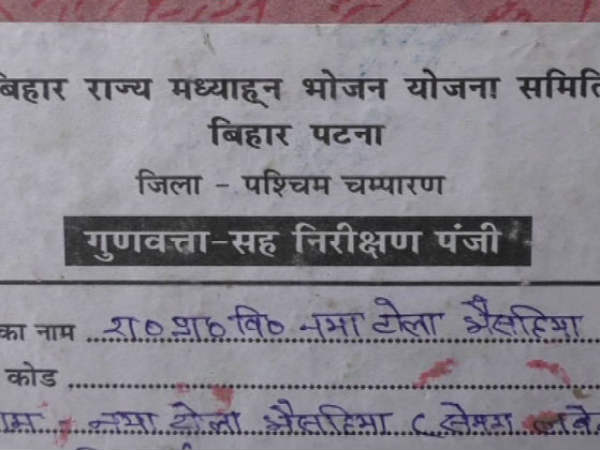 बिहार राज्य मध्याह्न भोजन योजना समिति
बिहार पटना
जिला - पश्चिम चम्पारण
गुणवत्ता-सह निरीक्षण पंजी
का नाम रा० प्रा० वि० नया टोला भैसहिया
कोड
नया टोला भैसहिया